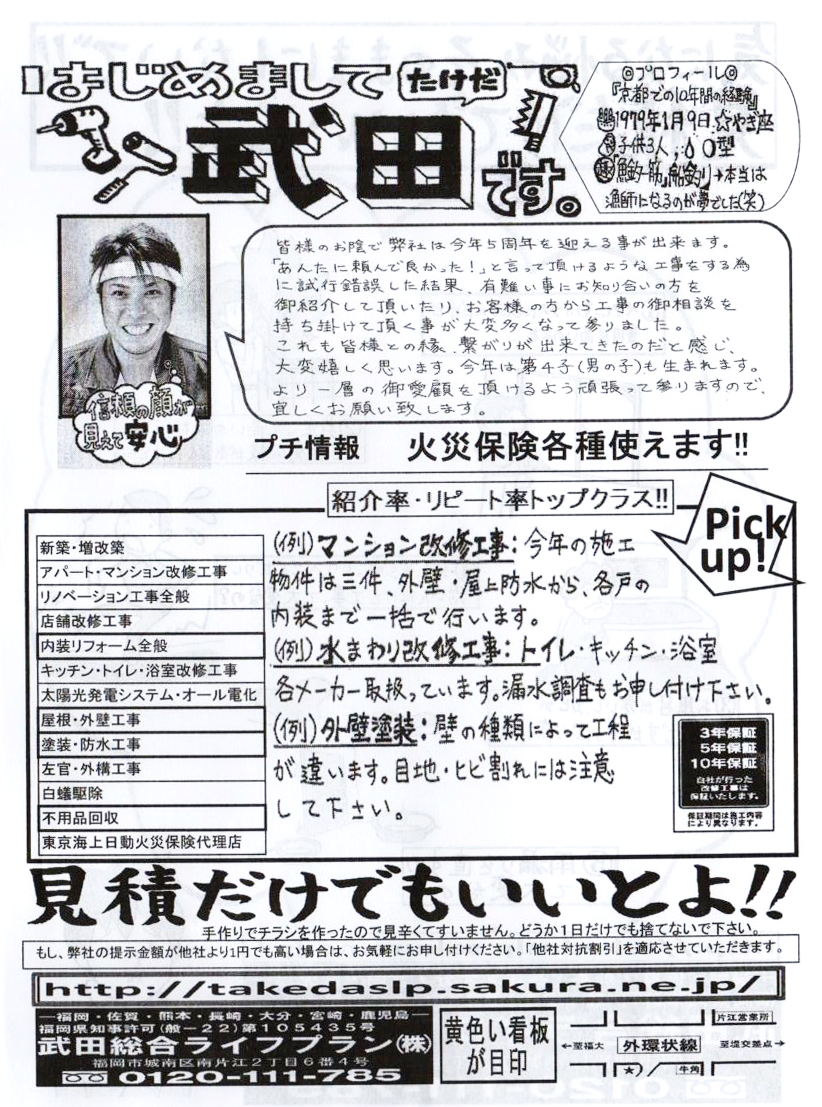 はじめまして
たけだ
武田です。
◎プロフィール◎
『京都での10年間の経験』
1979年1月9日 やぎ座
子供3人 O型
『魚釣り一筋』『船釣り』→本当は
漁師になるのが夢でした(笑)
皆様のお陰で弊社は今年5周年を迎える事が出来ます。
「あんたに頼んで良かった!」と言って頂けるような工事をする為
に試行錯誤した結果、有難い事にお知り合いの方を
御紹介して頂いたり、お客様の方から工事の御相談を
持ち掛けて頂く事が大変多くなって参りました。
これも皆様との縁、繋がりが出来てきたのだと感じ、
大変嬉しく思います。今年は第4子(男の子)も生まれます。
より一層の御愛顧を頂けるよう頑張って参りますので、
宜しくお願い致します。
信頼の顔が
見えて安心
プチ情報 火災保険各種使えます!!
紹介率・リピート率トップクラス!!
Pick
up!
新築・増改築
アパート・マンション改修工事
リノベーション工事全般
店舗改修工事
内装リフォーム全般
キッチン・トイレ・浴室改修工事
太陽光発電システム・オール電化
屋根・外壁工事
塗装・防水工事
左官・外構工事
白蟻駆除
不用品回収
東京海上日動火災保険代理店
(例)マンション改修工事:今年の施工
物件は三件、外壁・屋上防水から、各戸の
内装まで一括で行います。
(例)水まわり改修工事:トイレ・キッチン・浴室
各メーカー取扱っています。漏水調査もお申し付け下さい。
(例)外壁塗装:壁の種類によって工程
が違います。目地・ヒビ割れには注意
して下さい。
3年保証
5年保証
10年保証
自社が行った
改修工事は
保証いたします。
保証期間は施工内容
により異なります。
見積だけでもいいとよ!!
手作りでチラシを作ったので見辛くてすいません。どうか1日だけでも捨てないで下さい。
もし、弊社の提示金額が他社より1円でも高い場合は、お気軽にお申し付けください。「他社対抗割引」を適応させていただきます。
http://takedaslp.sakura.ne.jp/
―福岡・佐賀・熊本・長崎・大分・宮崎・鹿児島―
福岡県知事許可(般－22)第105435号
武田総合ライフプラン(株)
福岡市城南区南片江2丁目6番4号
0120-111-785
黄色い看板
が目印
片江営業所
←至福大 外環状線 至堤交差点→
★ 牛角